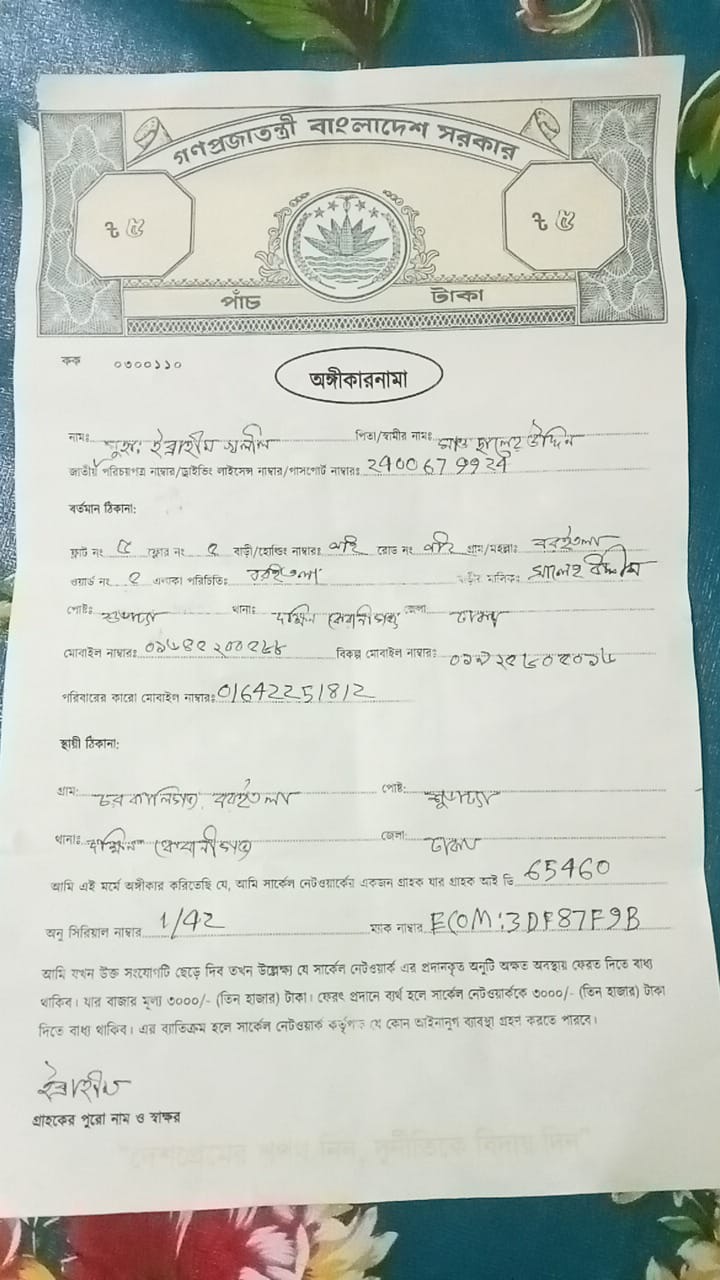 গণপ্রজাতন্ত্রী বাংলাদেশ সরকার
৳ ৫ ৳ ৫
পাঁচ টাকা
কক ০৩০০১১০
অঙ্গীকারনামা
নামঃ মুহাঃ ইব্রাহীম খলীল পিতা/স্বামীর নামঃ ছালেহ উদ্দিন
জাতীয় পরিচয়পত্র নাম্বার/ড্রাইভিং লাইসেন্স নাম্বার/পাসপোর্ট নাম্বারঃ 2400679924
বর্তমান ঠিকানা:
ফ্লাট নং ৫ ফ্লোর নং ৫ বাড়ী/হোল্ডিং নাম্বারঃ রোড নং গ্রাম/মহল্লাঃ বরইতলা
ওয়ার্ড নং ২ এলাকা পরিচিতিঃ বরইতলা বাড়ীর মালিকঃ সালেহ উদ্দীন
পোষ্টঃ শুভাঢ্যা থানাঃ দক্ষিন কেরানীগঞ্জ জেলা ঢাকা
মোবাইল নাম্বারঃ বিকল্প মোবাইল নাম্বারঃ
পরিবারের কারো মোবাইল নাম্বারঃ 01642251812
স্থায়ী ঠিকানা:
গ্রাম: চর কালিগঞ্জ, বরইতলা পোষ্ট: শুভাঢ্যা
থানাঃ দক্ষিন কেরানীগঞ্জ জেলা: ঢাকা
আমি এই মর্মে অঙ্গীকার করিতেছি যে, আমি সার্কেল নেটওয়ার্কের একজন গ্রাহক যার গ্রাহক আই ডি 65460
অনু সিরিয়াল নাম্বার 1/42 ম্যাক নাম্বার ECOM:3DF87F9B
আমি যখন উক্ত সংযোগটি ছেড়ে দিব তখন উল্লেক্ষ্য যে সার্কেল নেটওয়ার্ক এর প্রদানকৃত অনুটি অক্ষত অবস্থায় ফেরত দিতে বাধ্য
থাকিব। যার বাজার মূল্য ৩০০০/- (তিন হাজার) টাকা। ফেরৎ প্রদানে ব্যর্থ হলে সার্কেল নেটওয়ার্ককে ৩০০০/- (তিন হাজার) টাকা
দিতে বাধ্য থাকিব। এর ব্যতিক্রম হলে সার্কেল নেটওয়ার্ক কর্তৃপক্ষ যে কোন আইনানুগ ব্যবস্থা গ্রহণ করতে পারবে।
ইব্রাহীম
গ্রাহকের পুরো নাম ও স্বাক্ষর
"দেশপ্রেমের শপথ নিন, দুর্নীতিকে বিদায় দিন"